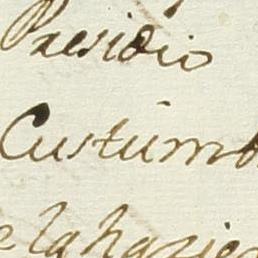 Presidio
Custumb
e la hazien